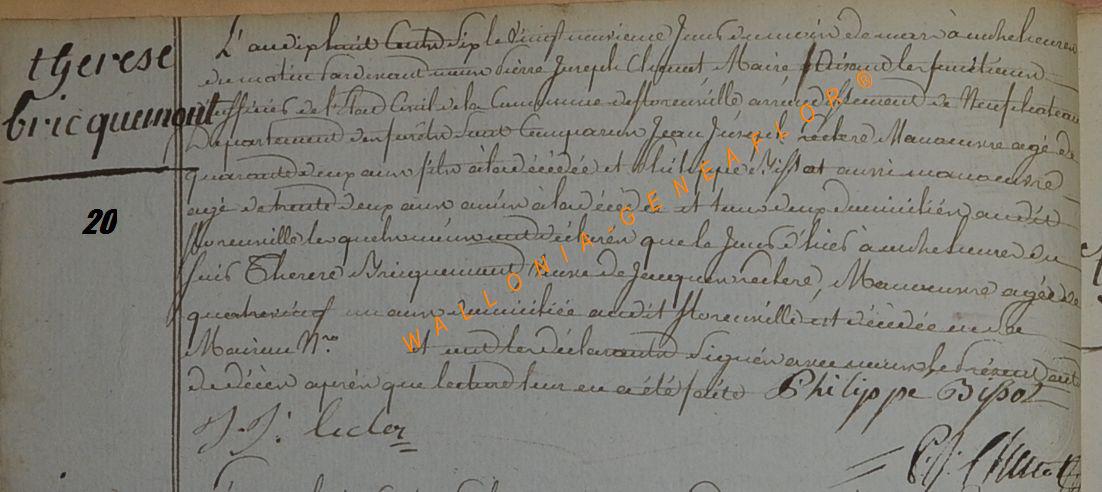 therese
bricquemont
20
L'an dix huit Cents dix le vingt neuvieme Jour du mois de mars à onze heures
du matin Pardevant nous Pierre Joseph Maire faisant les fonctions
d'officier de l'Etat Civil de la Commune de florenville arrondissement de Neufchateau
Departement des forêts Sont Comparus Jean Joseph leclere Manoeuvre agé de
quarante deux ans fils à la décédée et Philippe Bissot aussi manoeuvre
agé de trente deux ans à la décédée et tous deux domiciliés audit
florenville lesquels nous ont déclarés que le Jour d'hier à onze heures du
soir Therese Bricquemont veuve de Jacques leclere, Manoeuvre agée de
quatre vingt un ans domiciliée audit florenville est décédée en sa
Maison N.ro et ont les déclarants Signés avec nous le présent acte
de décès après que lecture leur en a été faite Philippe Bissot
J. J. lecler
P. J.
WALLONIA-GENEAFLOR®